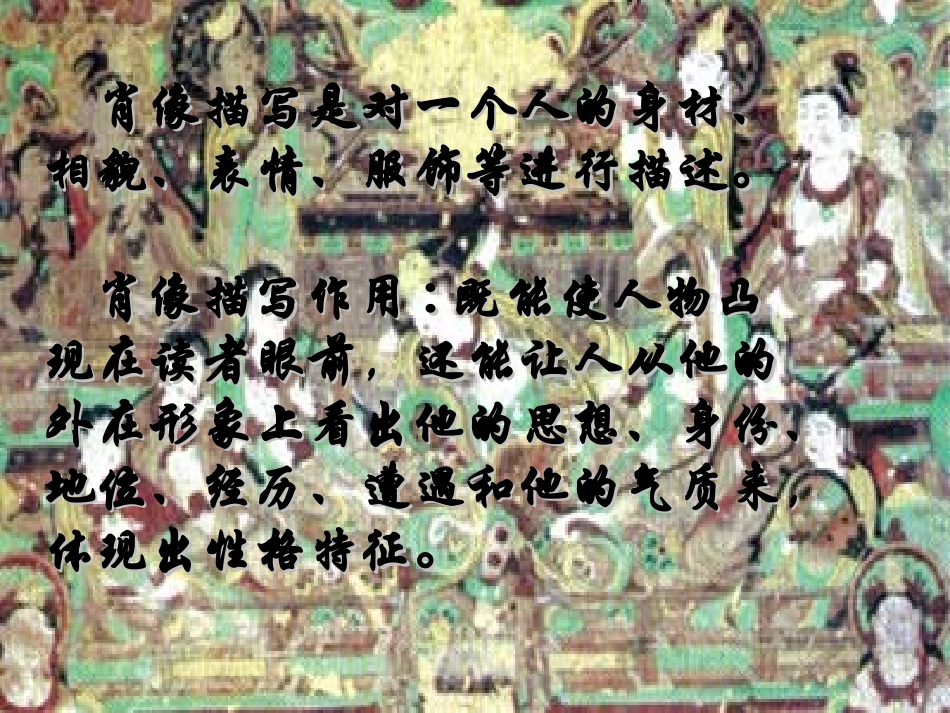 肖像描写是对一个人的身材、
相貌、表情、服饰等进行描述。
肖像描写作用：既能使人物凸
现在读者眼前，还能让人从他的
外在形象上看出他的思想、身份、
地位、经历、遭遇和他的气质来，
体现出性格特征。